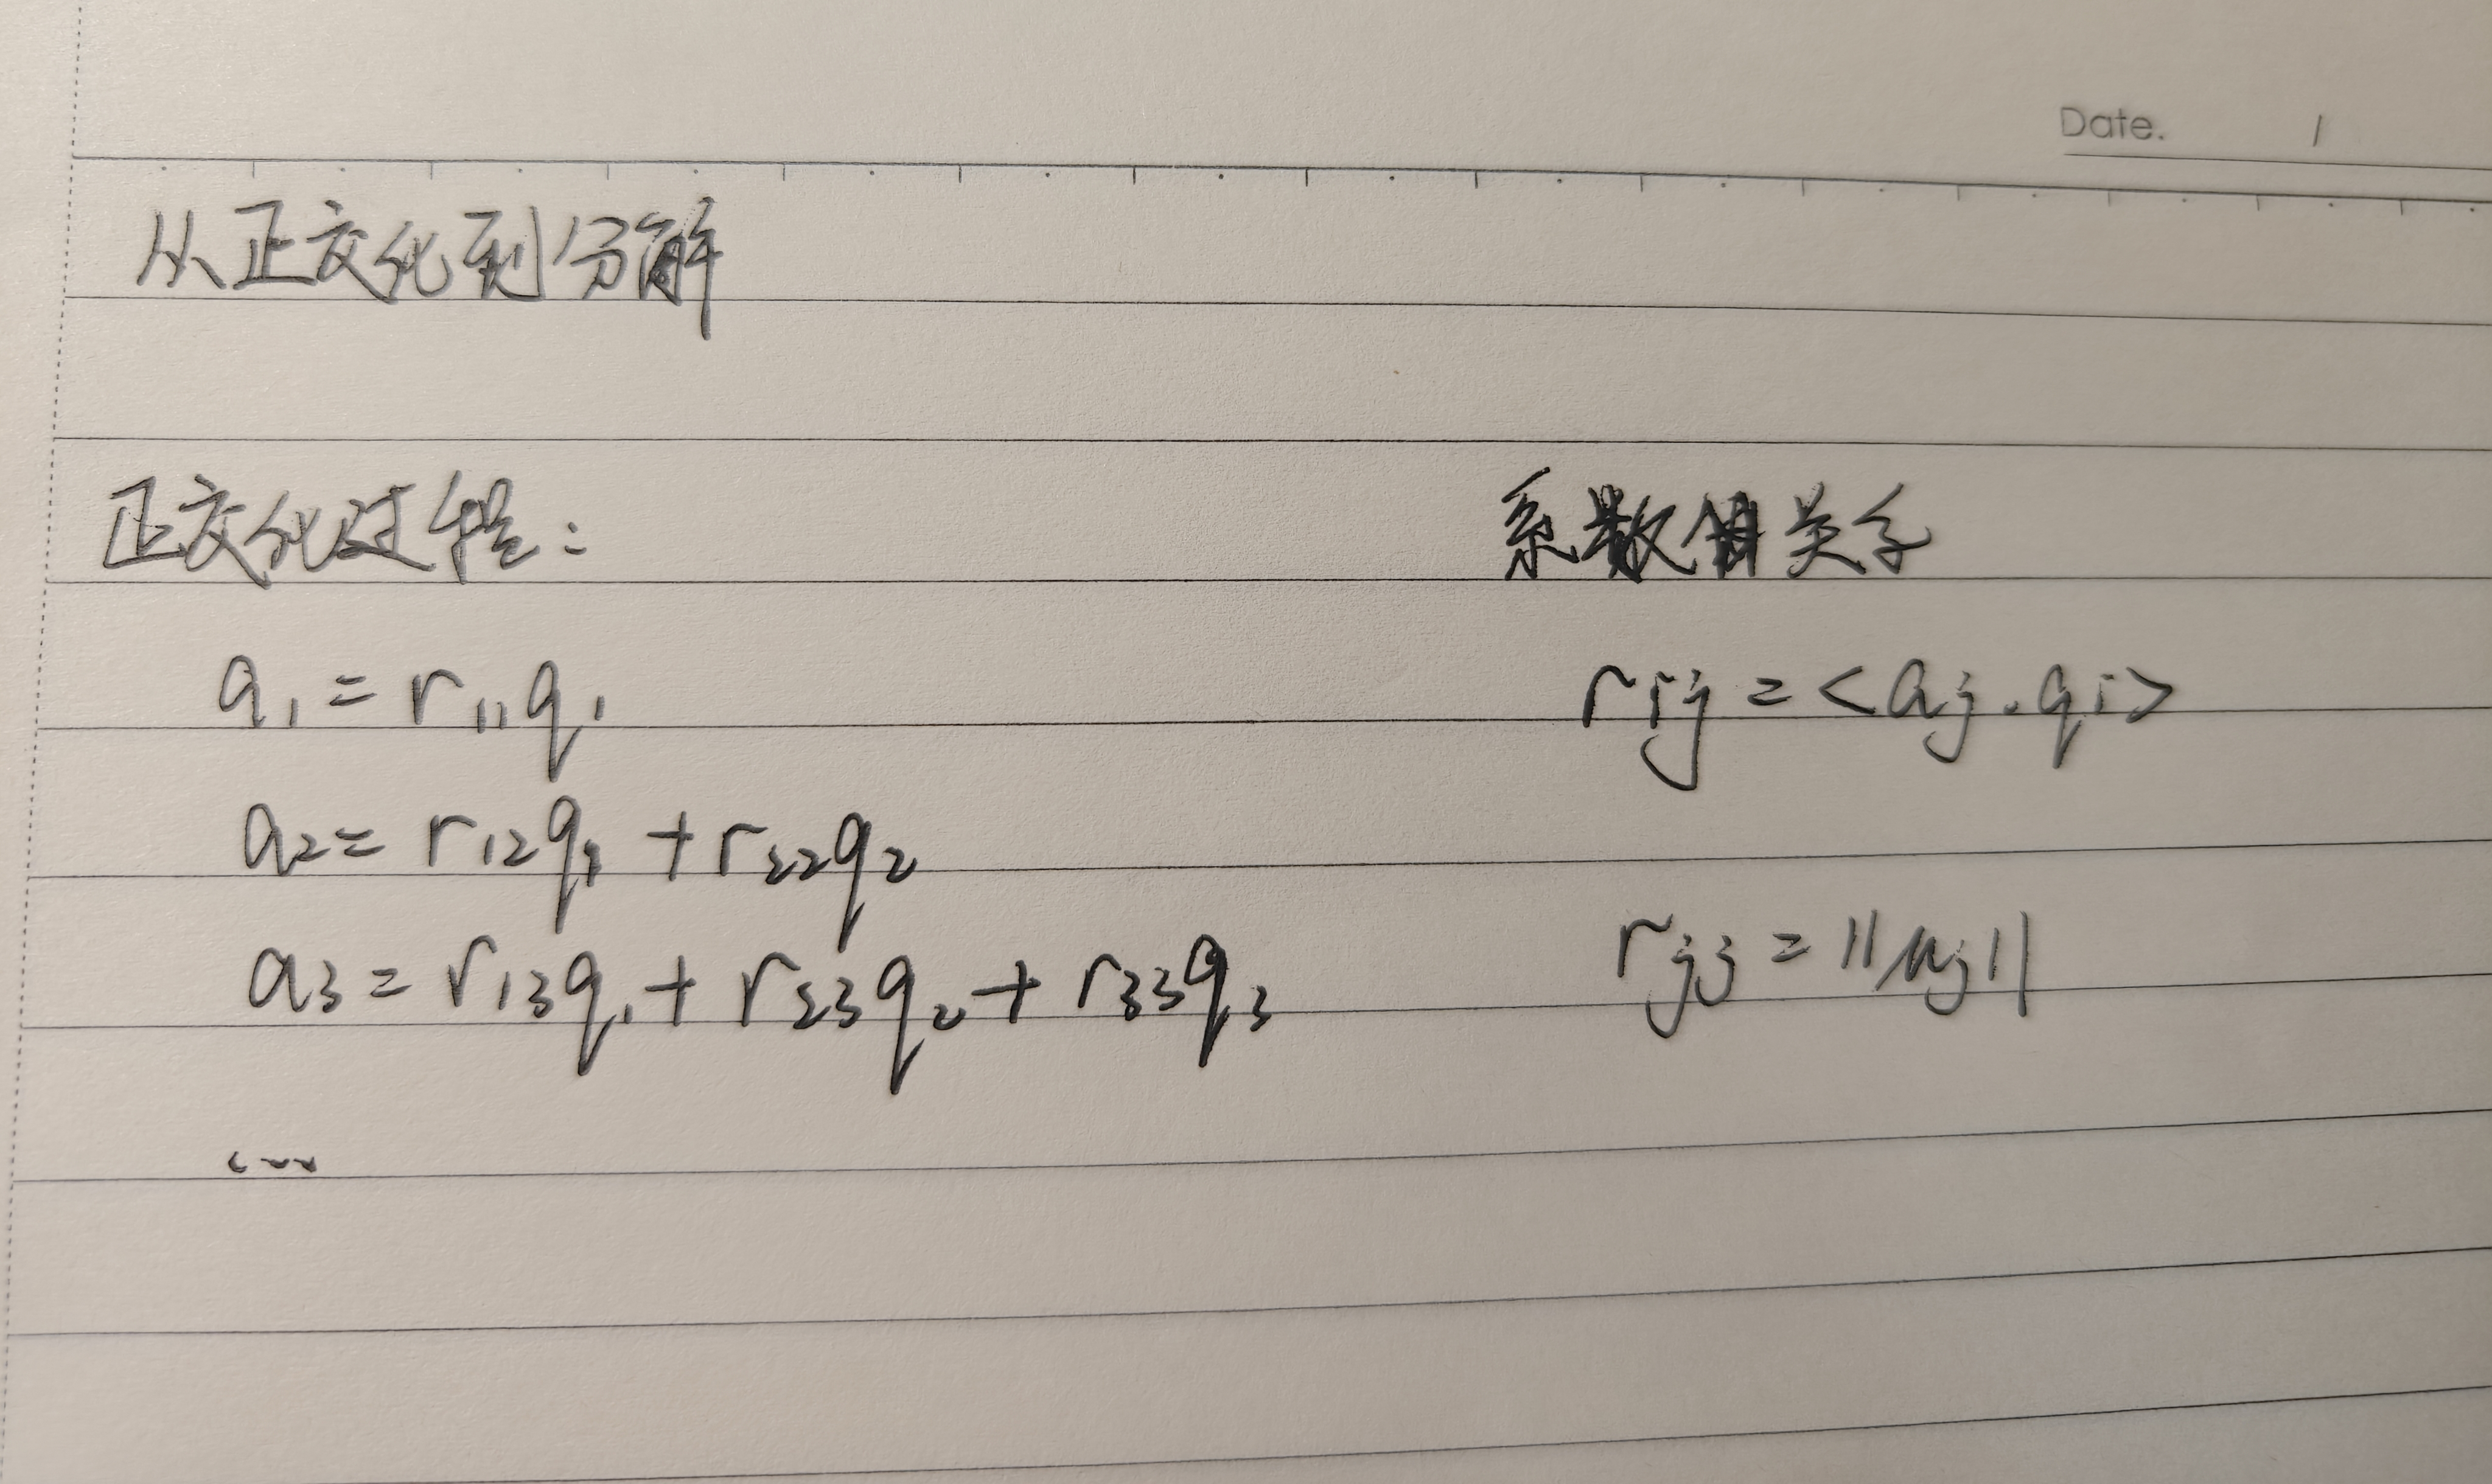 Date. /
从正交化到分解
正交化过程：
a₁ = r₁₁q₁
a₂ = r₁₂q₁ + r₂₂q₂
a₃ = r₁₃q₁ + r₂₃q₂ + r₃₃q₃
……
系数 关系
rᵢⱼ = <aⱼ, qᵢ>
rⱼⱼ = ||uⱼ||